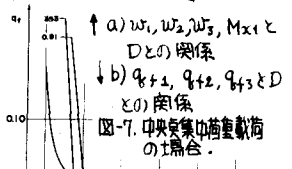 qf
0.91
0.10
↑ a) w1, w2, w3, Mx1と
Dとの関係
↓ b) qf1, qf2, qf3とD
との関係
図-7. 中央点集中荷重載荷
の場合.